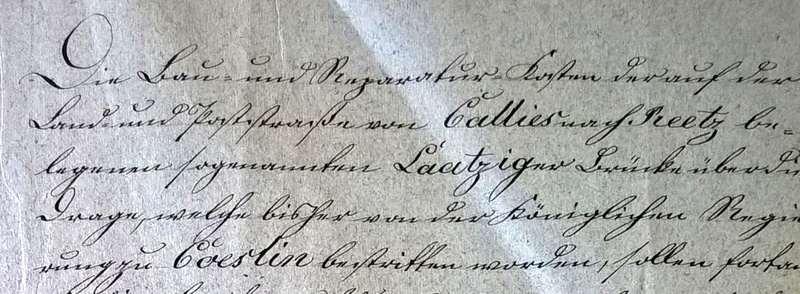 Die Bau- und Reparatur-Kosten der auf der
Land- und Poststraße von Callies nach Reetz be-
legenen sogenannten Läatziger Brücke über die
Drage, welche bisher von der Königlichen Regie
rung zu Coeslin bestritten worden, sollen fortan